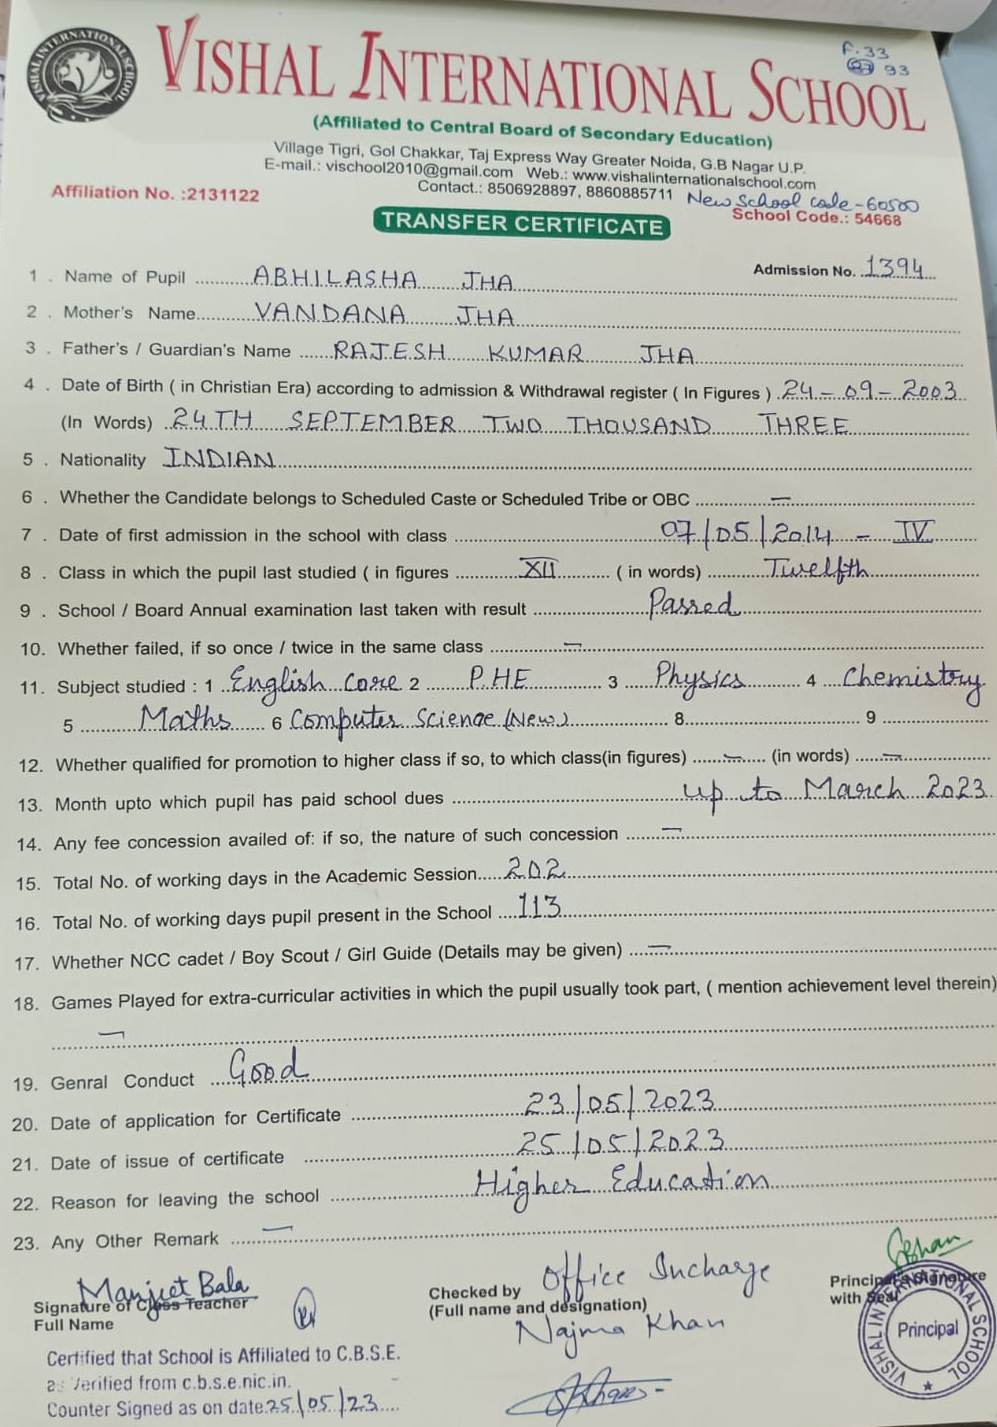 VISHAL INTERNATIONAL SCHOOL
F.33
93
(Affiliated to Central Board of Secondary Education)
Village Tigri, Gol Chakkar, Taj Express Way Greater Noida, G.B Nagar U.P.
E-mail.: vischool2010@gmail.com Web.: www.vishalinternationalschool.com
Affiliation No. :2131122 Contact.: 8506928897, 8860885711 New School code - 60500
TRANSFER CERTIFICATE School Code.: 54668
Admission No. 1394
1 . Name of Pupil ABHILASHA JHA
2 . Mother's Name VANDANA JHA
3 . Father's / Guardian's Name RAJESH KUMAR JHA
4 . Date of Birth ( in Christian Era) according to admission & Withdrawal register ( In Figures ) 24 - 09 - 2003
(In Words) 24TH SEPTEMBER TWO THOUSAND THREE
5 . Nationality INDIAN
6 . Whether the Candidate belongs to Scheduled Caste or Scheduled Tribe or OBC —
7 . Date of first admission in the school with class 07/05/2014 - IV
8 . Class in which the pupil last studied ( in figures XII ( in words) Twelfth
9 . School / Board Annual examination last taken with result Passed
10. Whether failed, if so once / twice in the same class —
11. Subject studied : 1 English Core 2 P.HE 3 Physics 4 Chemistry
5 Maths 6 Computer Science (New) 8 9
12. Whether qualified for promotion to higher class if so, to which class(in figures) — (in words) —
13. Month upto which pupil has paid school dues up to March 2023
14. Any fee concession availed of: if so, the nature of such concession —
15. Total No. of working days in the Academic Session 202
16. Total No. of working days pupil present in the School 113
17. Whether NCC cadet / Boy Scout / Girl Guide (Details may be given) —
18. Games Played for extra-curricular activities in which the pupil usually took part, ( mention achievement level therein)
—
19. Genral Conduct Good
20. Date of application for Certificate 23/05/2023
21. Date of issue of certificate 25/05/2023
22. Reason for leaving the school Higher Education
23. Any Other Remark —
Manjeet Bala
Signature of Class Teacher
Full Name
Checked by Office Incharge
(Full name and designation)
Najma Khan
Principal's Signature
with Seal
VISHAL INTERNATIONAL SCHOOL
Principal
Certified that School is Affiliated to C.B.S.E.
as Verified from c.b.s.e.nic.in.
Counter Signed as on date 25/05/23